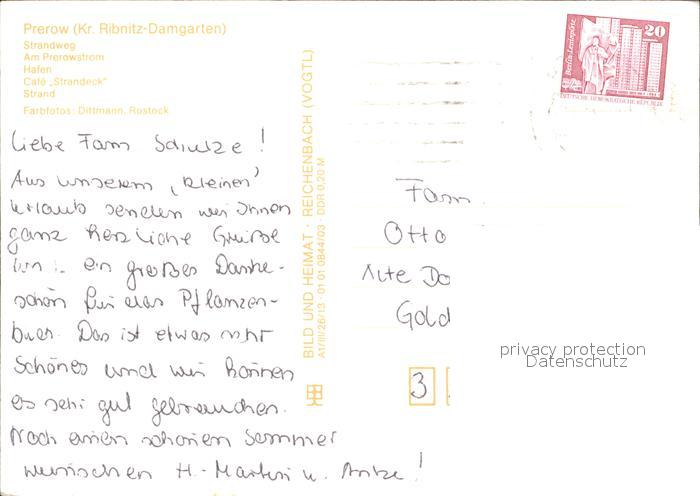 Prerow (Kr. Ribnitz-Damgarten)
Strandweg
Am Prerowstrom
Hafen
Café „Strandeck"
Strand
Farbfotos: Dittmann, Rostock
Liebe Fam Schulze!
Aus unserem ‚kleinen'
Urlaub senden wir Ihnen
ganz herzliche Grüße
ein großes Danke-
schön für das Pflanzen-
buch. Das ist etwas sehr
Schönes und wir können
es sehr gut gebrauchen.
Noch einen schönen Sommer
wünschen H.-Martin u. Antke!
BILD UND HEIMAT · REICHENBACH (VOGTL)
A1/III/26/13 01 01 0844/03 · DDR 0,20 M
Berlin, Leninplatz
20
DEUTSCHE DEMOKRATISCHE REPUBLIK
Fam.
Otto
Alte Do
Gold
3
privacy protection
Datenschutz